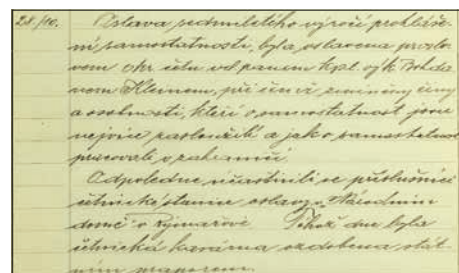 28./10. Oslava sedmiletého výročí prohláše-
ní samostatnosti, byla oslavena proslo-
vem okr. četn. vel. panem kpt.
nem Kleinem, při čemž zmíněny činy
a osobnosti, kteří o samostatnost jsou
nejvíce zasloužili a jako samostatnost
pracovali v zahraničí.
Odpoledne účastnili se příslušníci
četnické stanice oslavy v Národním
domě v Rýmařově. Téhož dne byla
četnická kasárna ozdobena stát-
ním praporem.